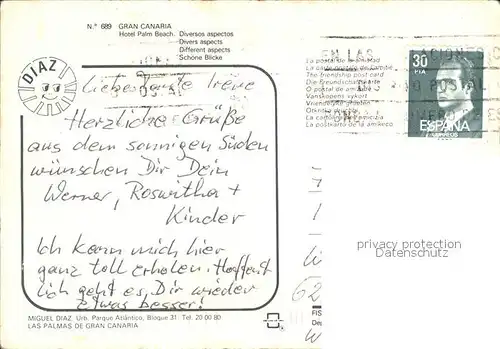 N.º 689 GRAN CANARIA
Hotel Palm Beach. Diversos aspectos
Divers aspects
Different aspects
Schöne Blicke
DIAZ
Liebe Tante Irene
Herzliche Grüße
aus dem sonnigen Süden
wünschen Dir Dein
Werner, Roswitha +
Kinder
Ich kann mich hier
ganz toll erholen. Hoffent
lich geht es Dir wieder
etwas besser!
MIGUEL DIAZ Urb. Parque Atlántico, Bloque 31. Tel. 20 00 80
LAS PALMAS DE GRAN CANARIA
La postal de la amistad
La carte postale de l'amitié
The friendship post card
Die Freundschaftskarte
O postal de amizade
Vanskopens vykort
La cartolina dell'amicizia
La postkarto de la amikeco
EN LAS
POSTAL
30
PTA
ESPAÑA
CORREOS
privacy protection
Datenschutz
62
FIS